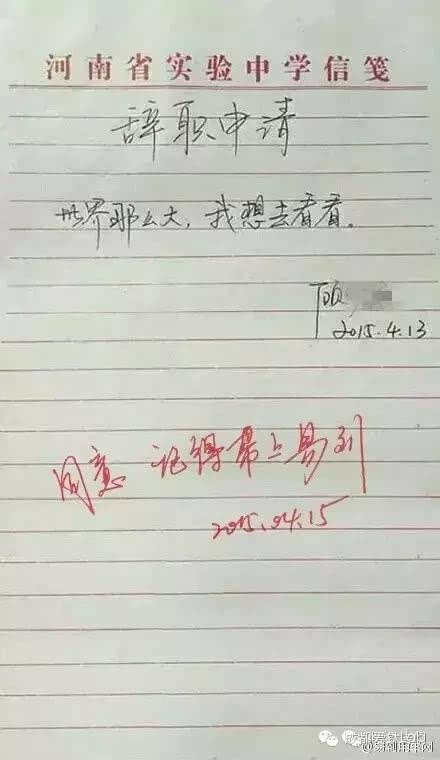 河南省实验中学信笺
辞职申请
世界那么大，我想去看看.
顾
2015.4.13
同意 记得带上易到
2015.04.15
成都爱